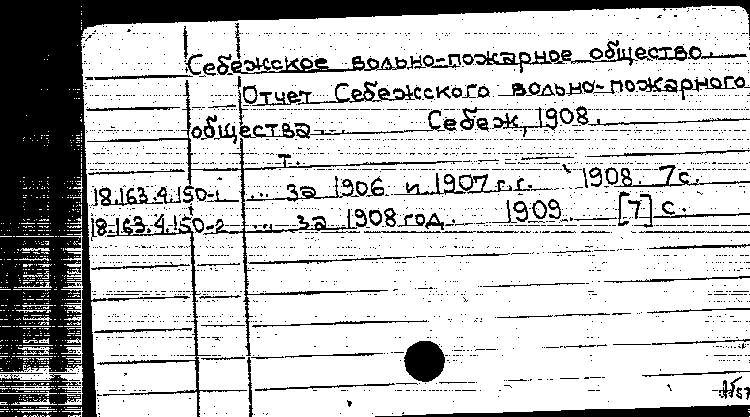 Себежское вольно-пожарное общество.
Отчет Себежского вольно-пожарного
общества... Себеж, 1908.
т.
18.163.4.150-1 ... за 1906 и 1907 г.г. 1908. 7 с.
18.163.4.150-2 ... за 1908 год. 1909. [7] с.